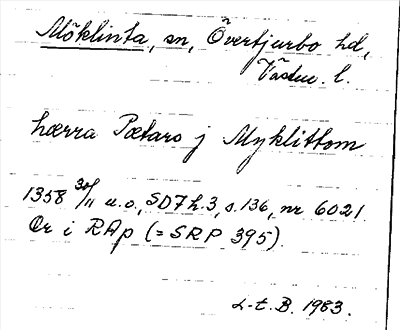 Möklinta, sn, Övertjurbo hd,
Västm. l.
hærra Pætaro j Myklittom
1358 30/11 u.o., SD7 h.3, s.136, nr 6021.
Or i RAp (= SRP 395).
L-t. B. 1983.